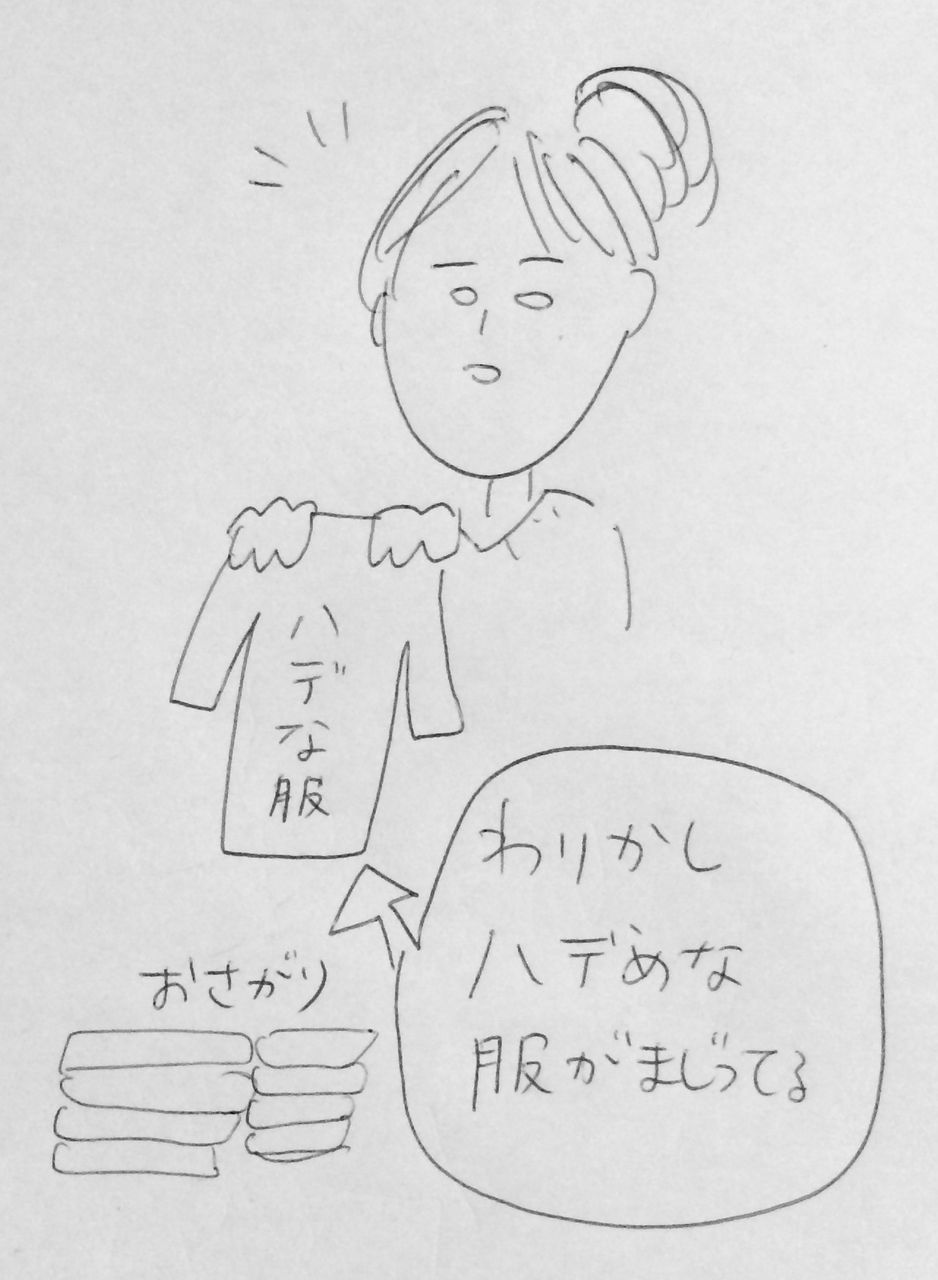 ハデな服
わりかし
ハデめな
服がまじってる
おさがり